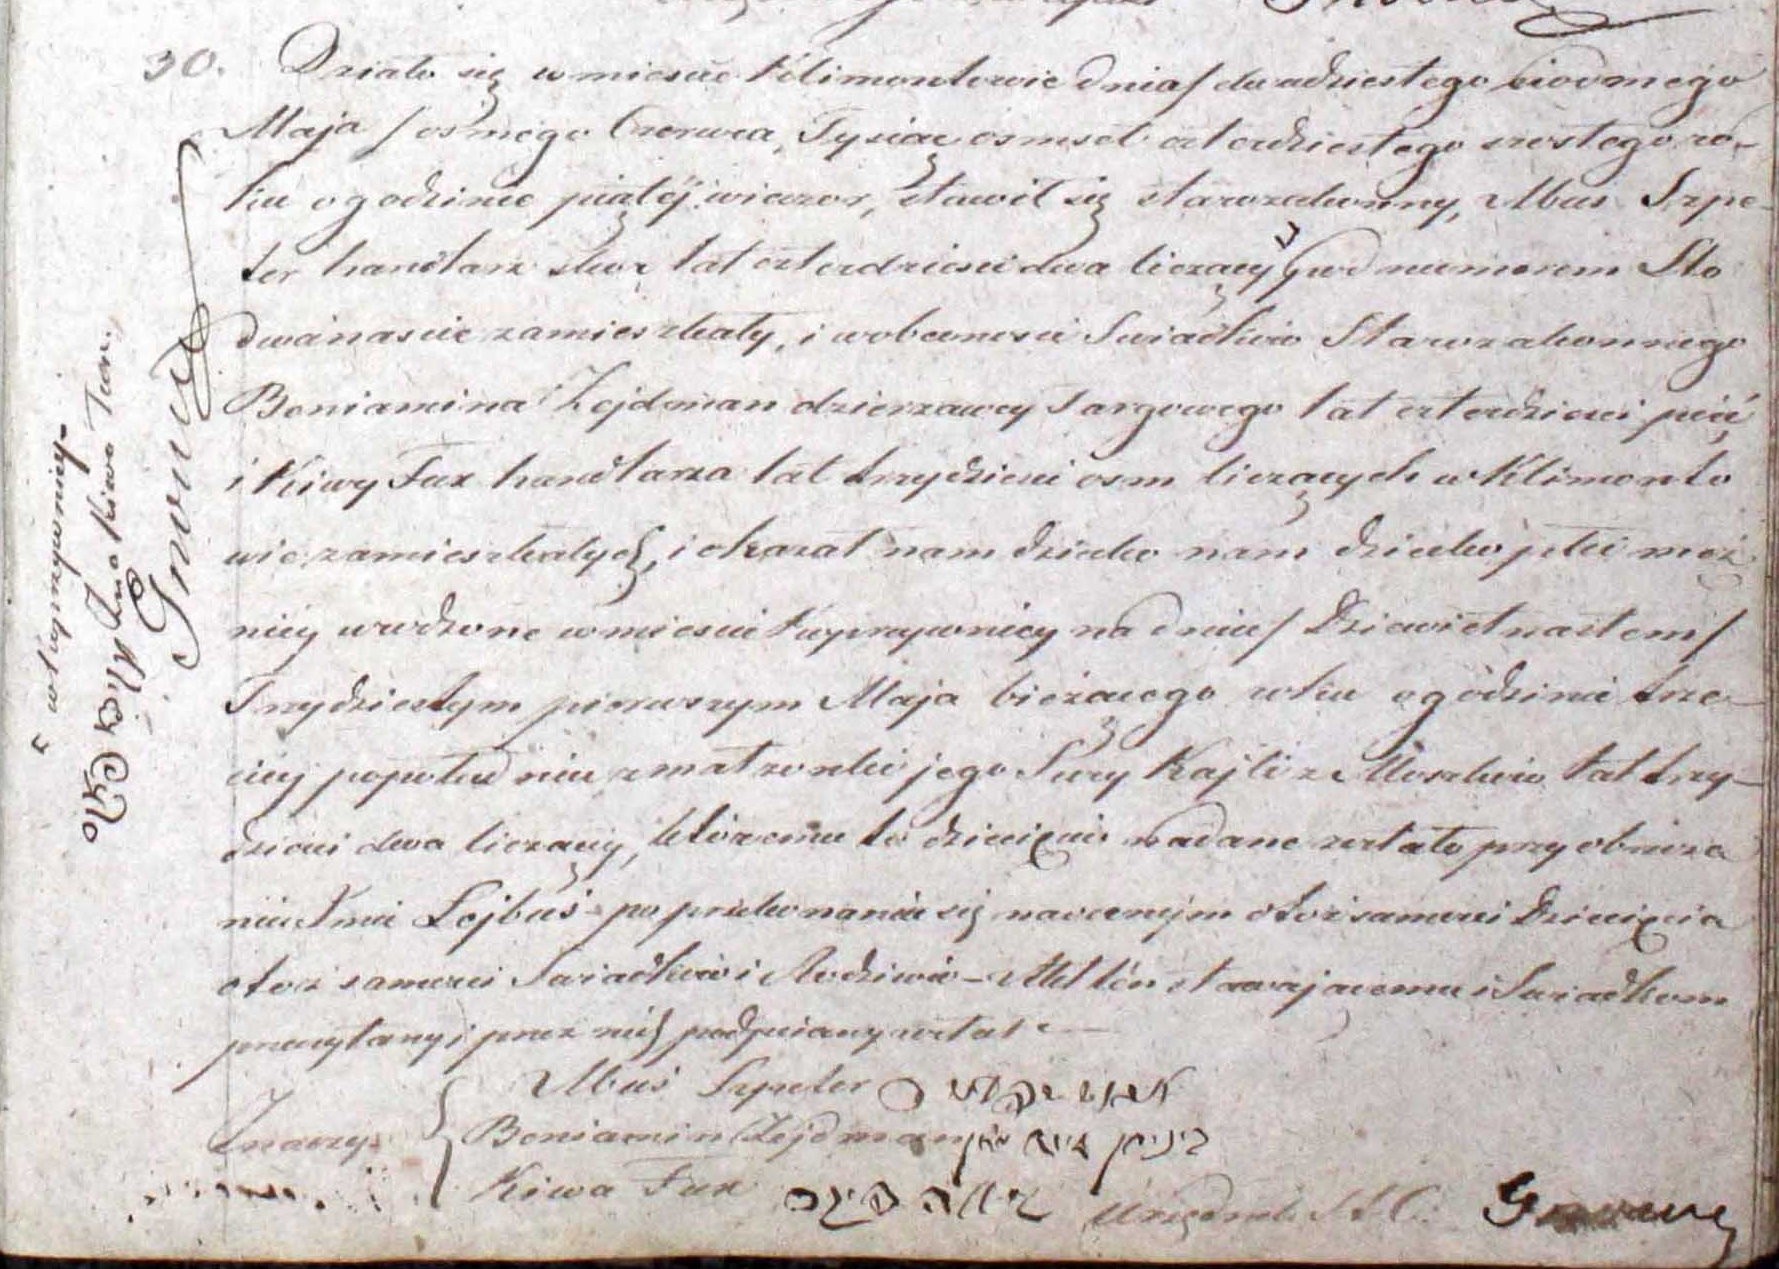 30. Działo się w miescie Klimontowie dnia / dwudziestego siodmego
Maja / osmego Czerwca, Tysiąc osmset czterdziestego szostego ro-
ku o godzinie piątéj wieczor, stawił się starozakonny, Abus Szpe-
ter handlarz lat czterdziesci dwa liczący pod numerem Sto
dwanascie zamieszkały, i w obecnosci Swiadków Starozakonnego
Beniamina Zejdman dzierzawcy Targowego lat czterdziesci pięć
i Kiwy Fux handlarza lat trzydziesci osm liczących w Klimonto
wie zamieszkałych, i okazał nam dziecko nam dziecko płci męz
niey urodzone w miescie na dniu / Dziewiętnastem /
Trzydziestym pierwszym Maja bieżącego roku o godzinie trze-
ciey popołudniu z małzonki jego Sury Kajli z Moszków lat trzy-
dziesci dwa liczącey, któremu to dziecięciu nadane zostało przy obrzeza
niu Imie Lejbuś po przekonaniu się naocznym otoż samosci Dziecięcia
otoż samosci Swiadków i Rodziców - Akt tén stawającemu i Swiadkom
przeczytany i przez nich podpisany został -
Abuś Szpeter
Znaczy: Beniamin Zejdman
Kiwa Fux
Urzędnik S. C.
Znaczy Kiwa Fux.